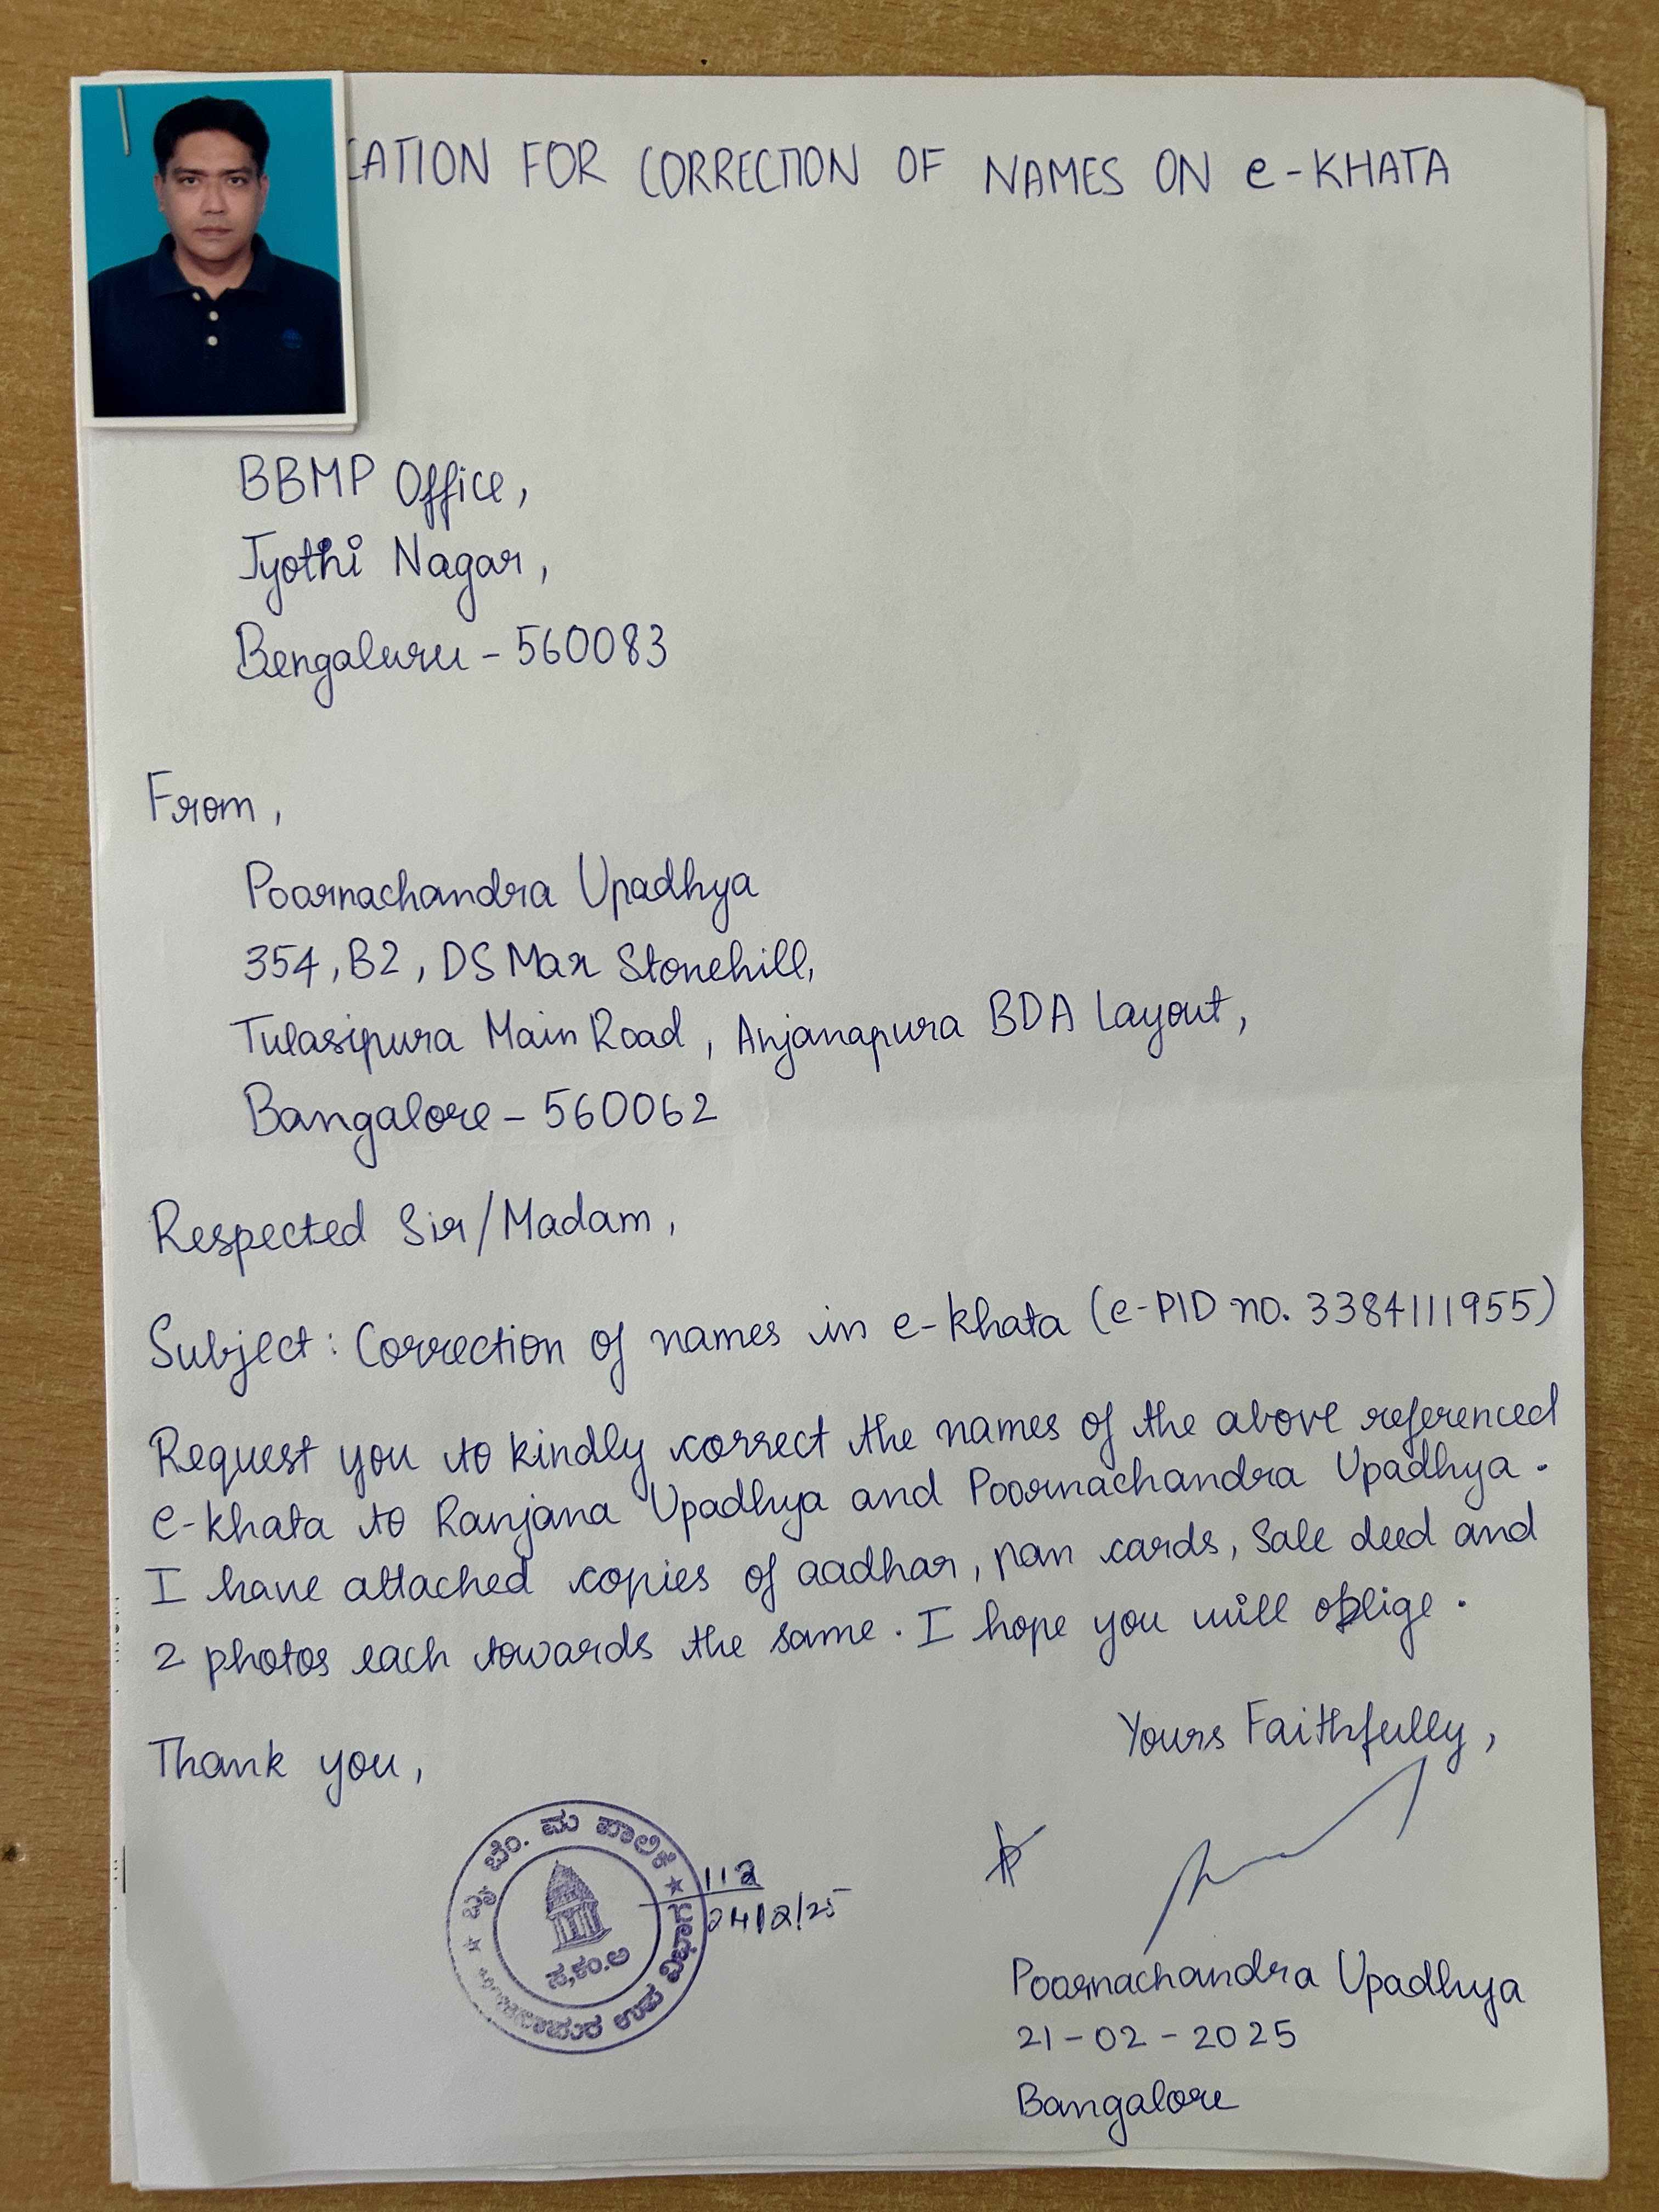 CATION FOR CORRECTION OF NAMES ON e-KHATA
BBMP Office,
Jyothi Nagar,
Bengaluru - 560083
From,
Poornachandra Upadhya
354, B2, DS Max Stonehill,
Tulasipura Main Road, Anjanapura BDA Layout,
Bangalore - 560062
Respected Sir/Madam,
Subject: Correction of names in e-khata (e-PID no. 3384111955)
Request you to kindly correct the names of the above referenced
e-khata to Ranjana Upadhya and Poornachandra Upadhya.
I have attached copies of aadhar, pan cards, sale deed and
2 photos each towards the same. I hope you will oblige.
Yours Faithfully,
Thank you,
ಬೃ ಬೆಂ. ಮ ಪಾಲಿಕೆ
ಸ.ಕಂ.ಅ
ಉಪ ವಿಭಾಗ
112
24/2/25
Poornachandra Upadhya
21-02-2025
Bangalore